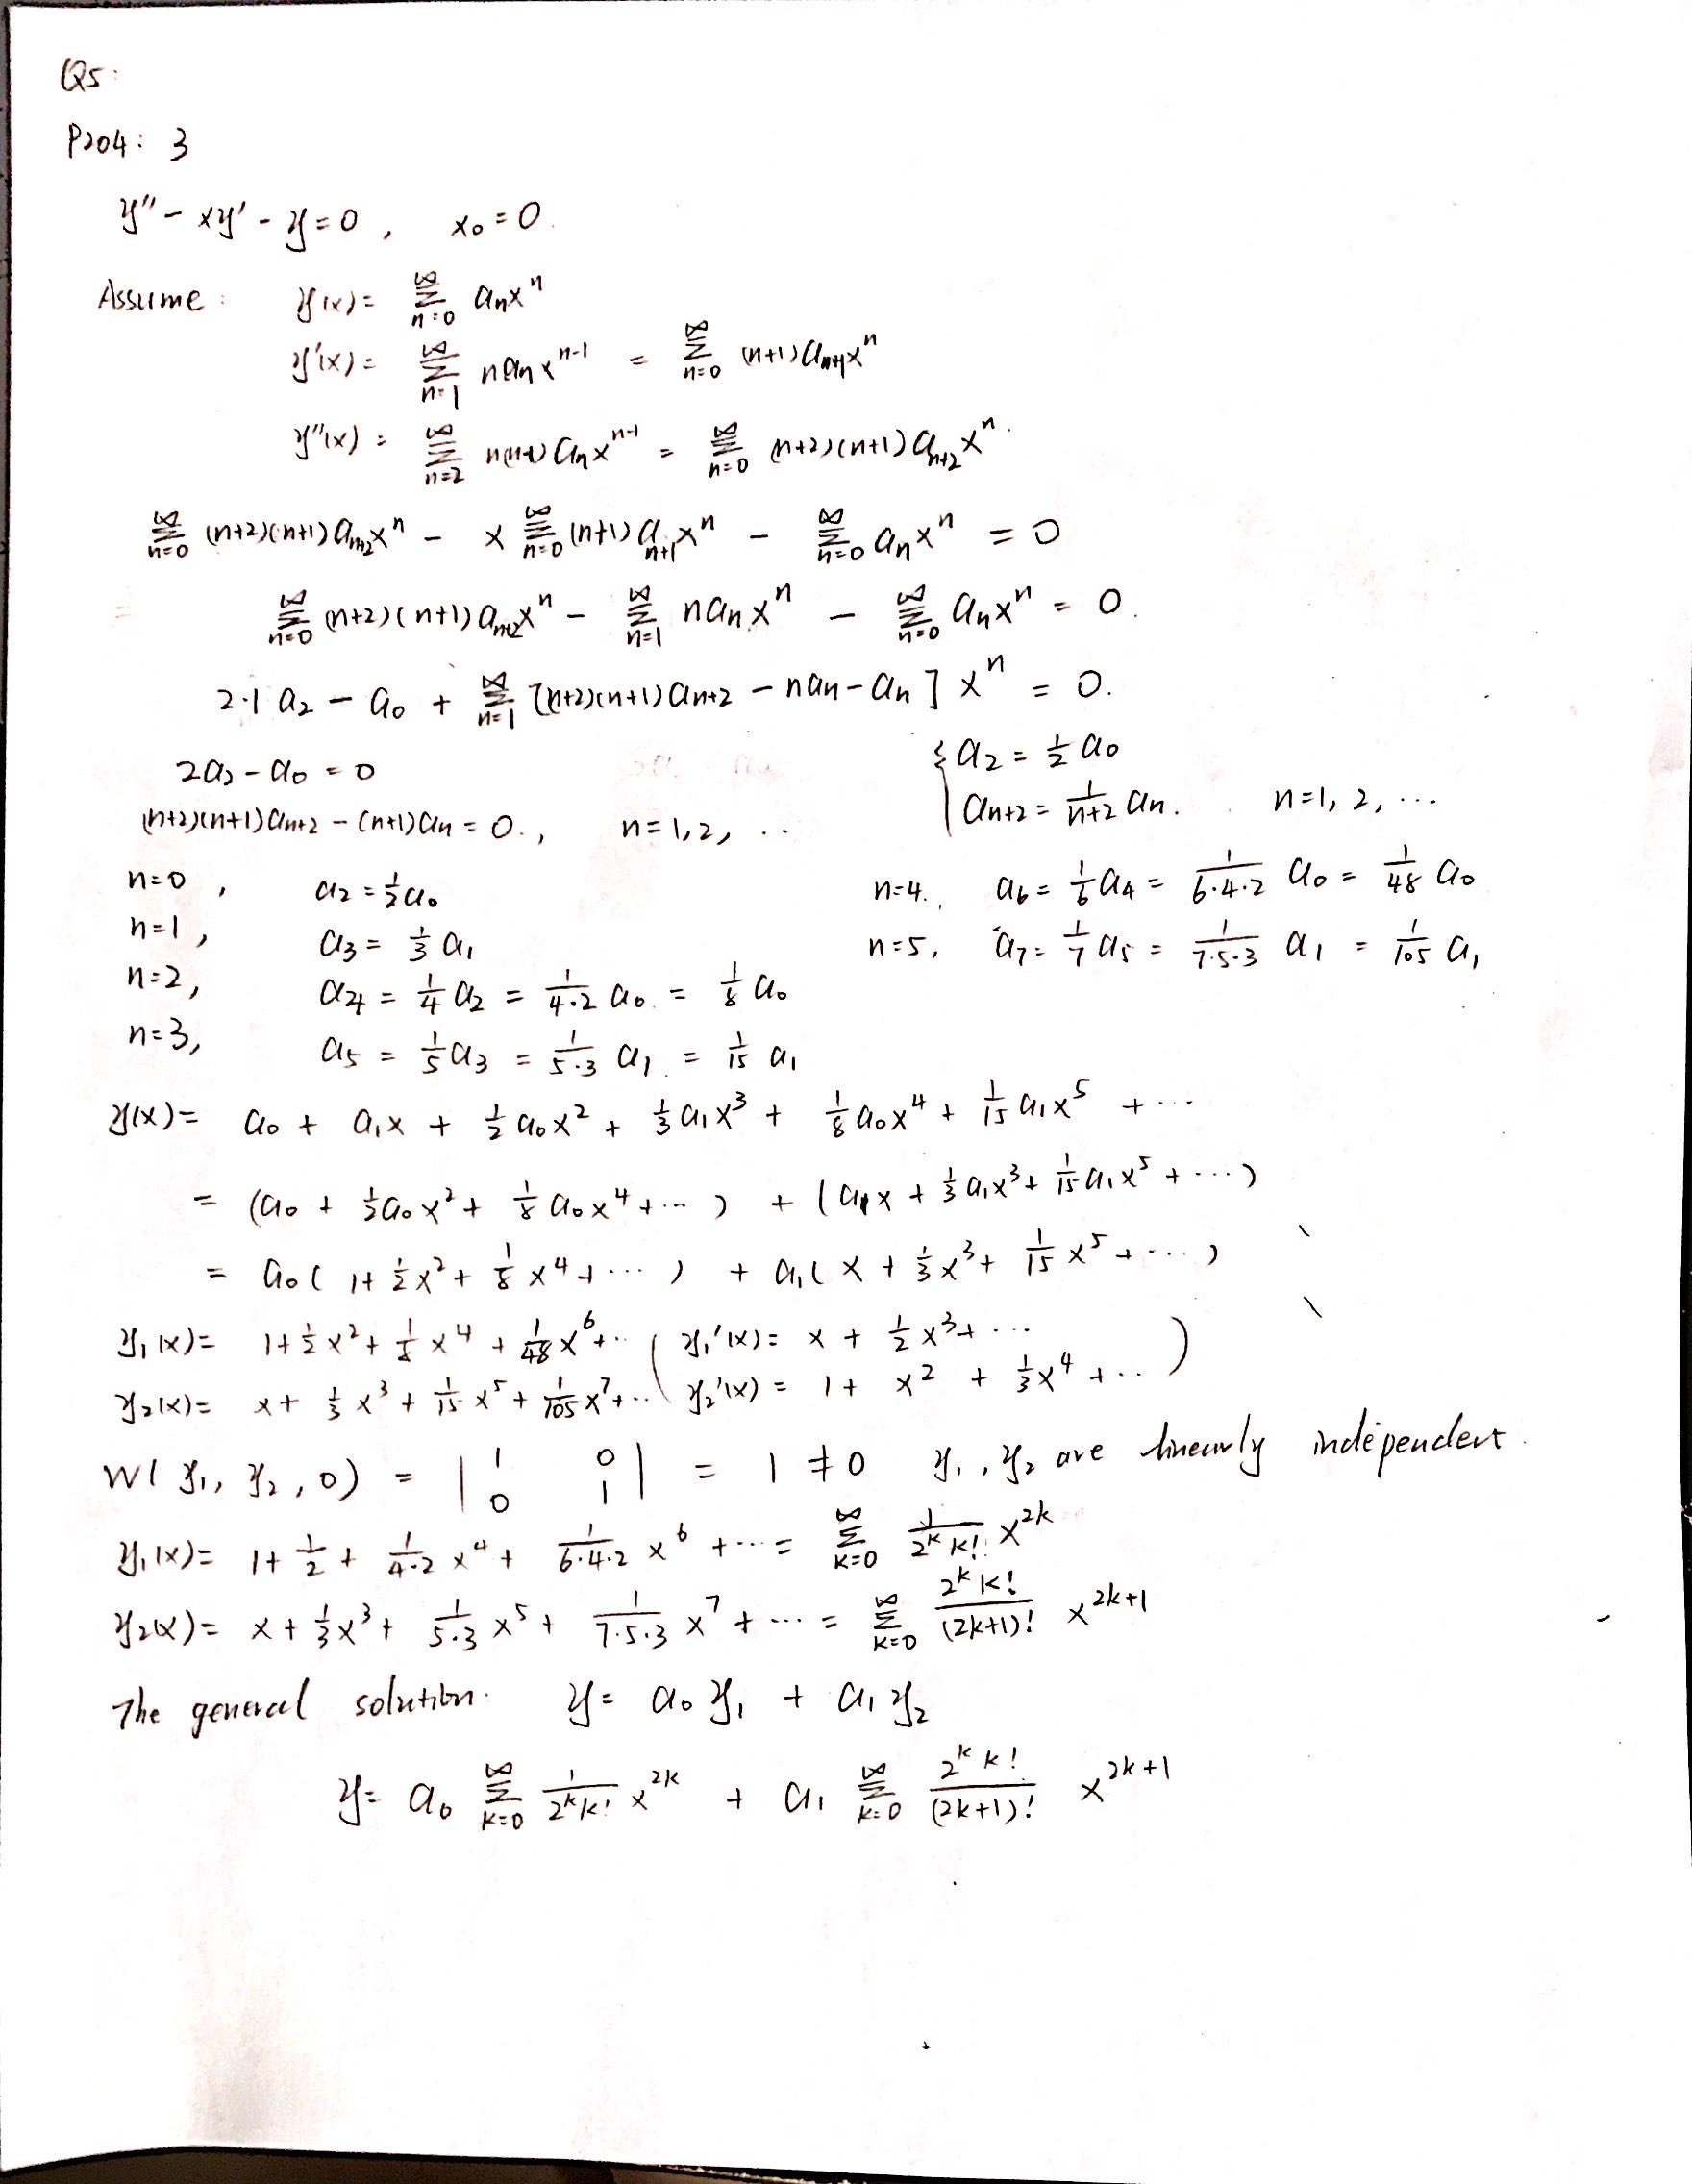 Q5:
P204: 3
y'' - xy' - y = 0 , x₀ = 0.
Assume : y(x) = ∑_{n=0}^∞ aₙxⁿ
y'(x) = ∑_{n=1}^∞ naₙxⁿ⁻¹ = ∑_{n=0}^∞ (n+1)aₙ₊₁xⁿ
y''(x) = ∑_{n=2}^∞ n(n-1)aₙxⁿ⁻¹ = ∑_{n=0}^∞ (n+2)(n+1)aₙ₊₂xⁿ.
∑_{n=0}^∞ (n+2)(n+1)aₙ₊₂xⁿ - x ∑_{n=0}^∞ (n+1)aₙ₊₁xⁿ - ∑_{n=0}^∞ aₙxⁿ = 0
∑_{n=0}^∞ (n+2)(n+1)aₙ₊₂xⁿ - ∑_{n=1}^∞ naₙxⁿ - ∑_{n=0}^∞ aₙxⁿ = 0.
2·1 a₂ - a₀ + ∑_{n=1}^∞ [(n+2)(n+1)aₙ₊₂ - naₙ - aₙ] xⁿ = 0.
2a₂ - a₀ = 0
(n+2)(n+1)aₙ₊₂ - (n+1)aₙ = 0., n=1,2, ..
{ a₂ = 1/2 a₀
aₙ₊₂ = 1/(n+2) aₙ. n=1, 2, ...
n=0 , a₂ = 1/2 a₀
n=1 , a₃ = 1/3 a₁
n=2, a₄ = 1/4 a₂ = 1/(4·2) a₀ = 1/8 a₀
n=3, a₅ = 1/5 a₃ = 1/(5·3) a₁ = 1/15 a₁
n=4., a₆ = 1/6 a₄ = 1/(6·4·2) a₀ = 1/48 a₀
n=5, a₇ = 1/7 a₅ = 1/(7·5·3) a₁ = 1/105 a₁
y(x) = a₀ + a₁x + 1/2 a₀x² + 1/3 a₁x³ + 1/8 a₀x⁴ + 1/15 a₁x⁵ + ...
= (a₀ + 1/2 a₀x² + 1/8 a₀x⁴ + ... ) + (a₁x + 1/3 a₁x³ + 1/15 a₁x⁵ + ... )
= a₀( 1 + 1/2 x² + 1/8 x⁴ + ... ) + a₁( x + 1/3 x³ + 1/15 x⁵ + ... )
y₁(x) = 1 + 1/2 x² + 1/8 x⁴ + 1/48 x⁶ + .. ( y₁'(x) = x + 1/2 x³ + ...
y₂(x) = x + 1/3 x³ + 1/15 x⁵ + 1/105 x⁷ + .. y₂'(x) = 1 + x² + 1/3 x⁴ + .. )
W( y₁, y₂, 0) = | 1 0 ; 0 1 | = 1 ≠ 0 y₁, y₂ are linearly independent.
y₁(x) = 1 + 1/2 + 1/(4·2) x⁴ + 1/(6·4·2) x⁶ + ... = ∑_{k=0}^∞ 1/(2ᵏ k!) x²ᵏ
y₂(x) = x + 1/3 x³ + 1/(5·3) x⁵ + 1/(7·5·3) x⁷ + ... = ∑_{k=0}^∞ 2ᵏ k!/(2k+1)! x²ᵏ⁺¹
The general solution. y = a₀ y₁ + a₁ y₂
y = a₀ ∑_{k=0}^∞ 1/(2ᵏ k!) x²ᵏ + a₁ ∑_{k=0}^∞ 2ᵏ k!/(2k+1)! x²ᵏ⁺¹